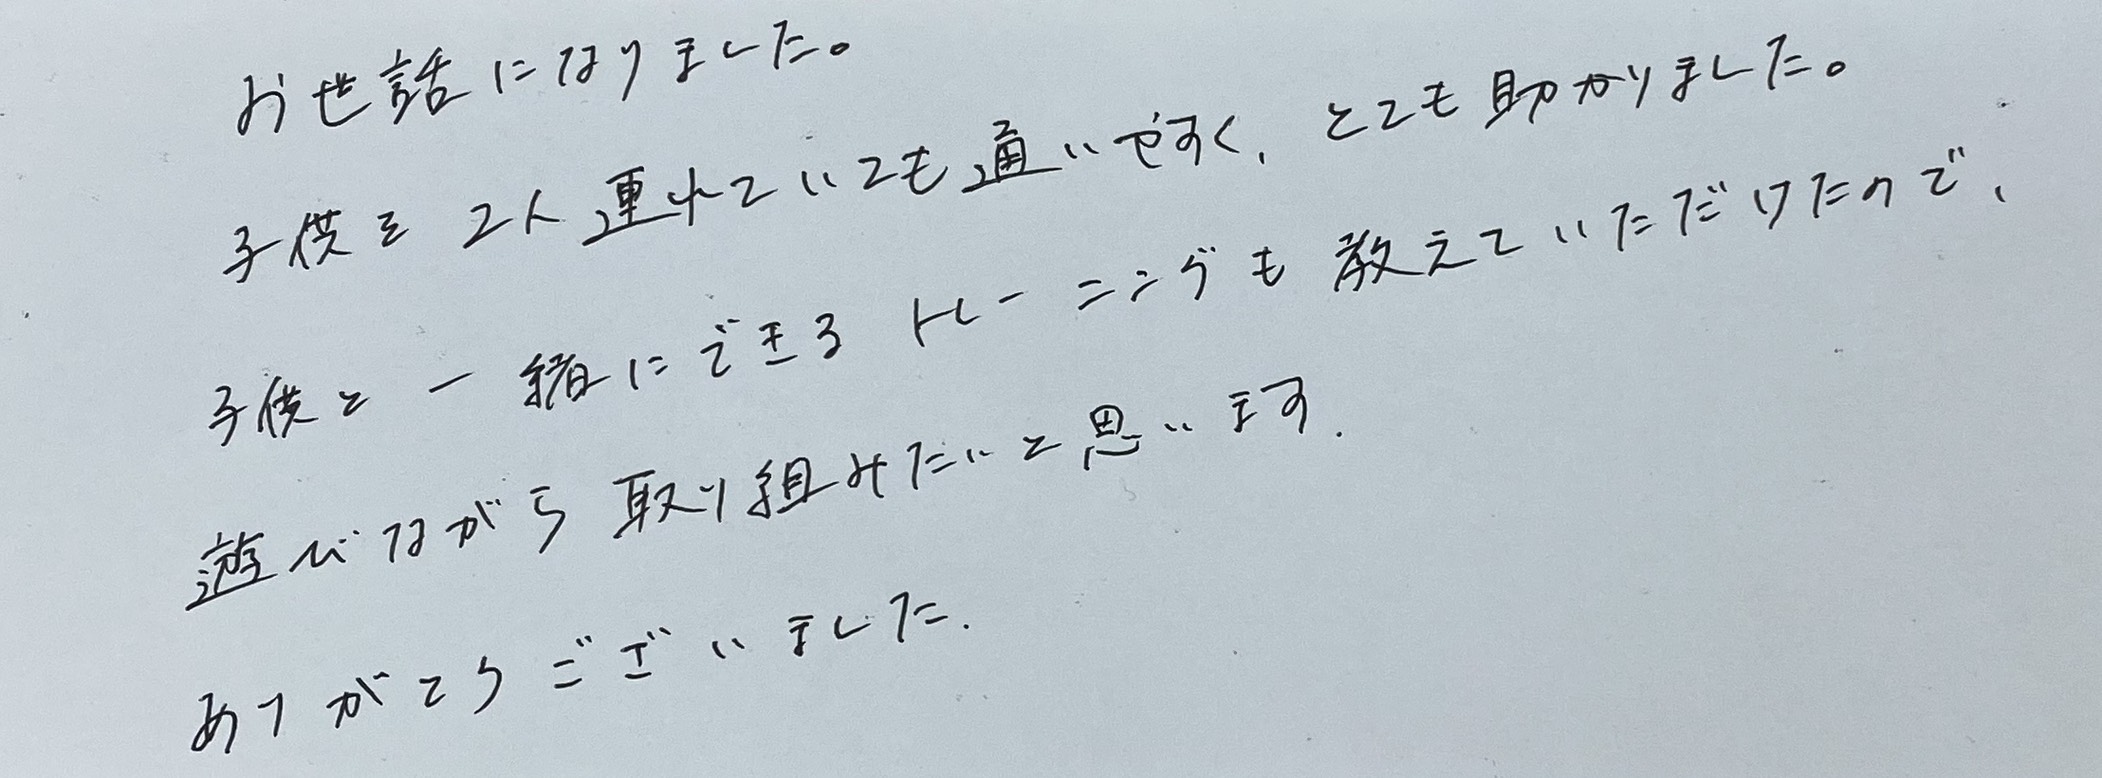 お世話になりました。
子供を2人連れていても通いやすく、とても助かりました。
子供と一緒にできるトレーニングも教えていただけたので、
遊びながら取り組みたいと思います.
ありがとうございました.